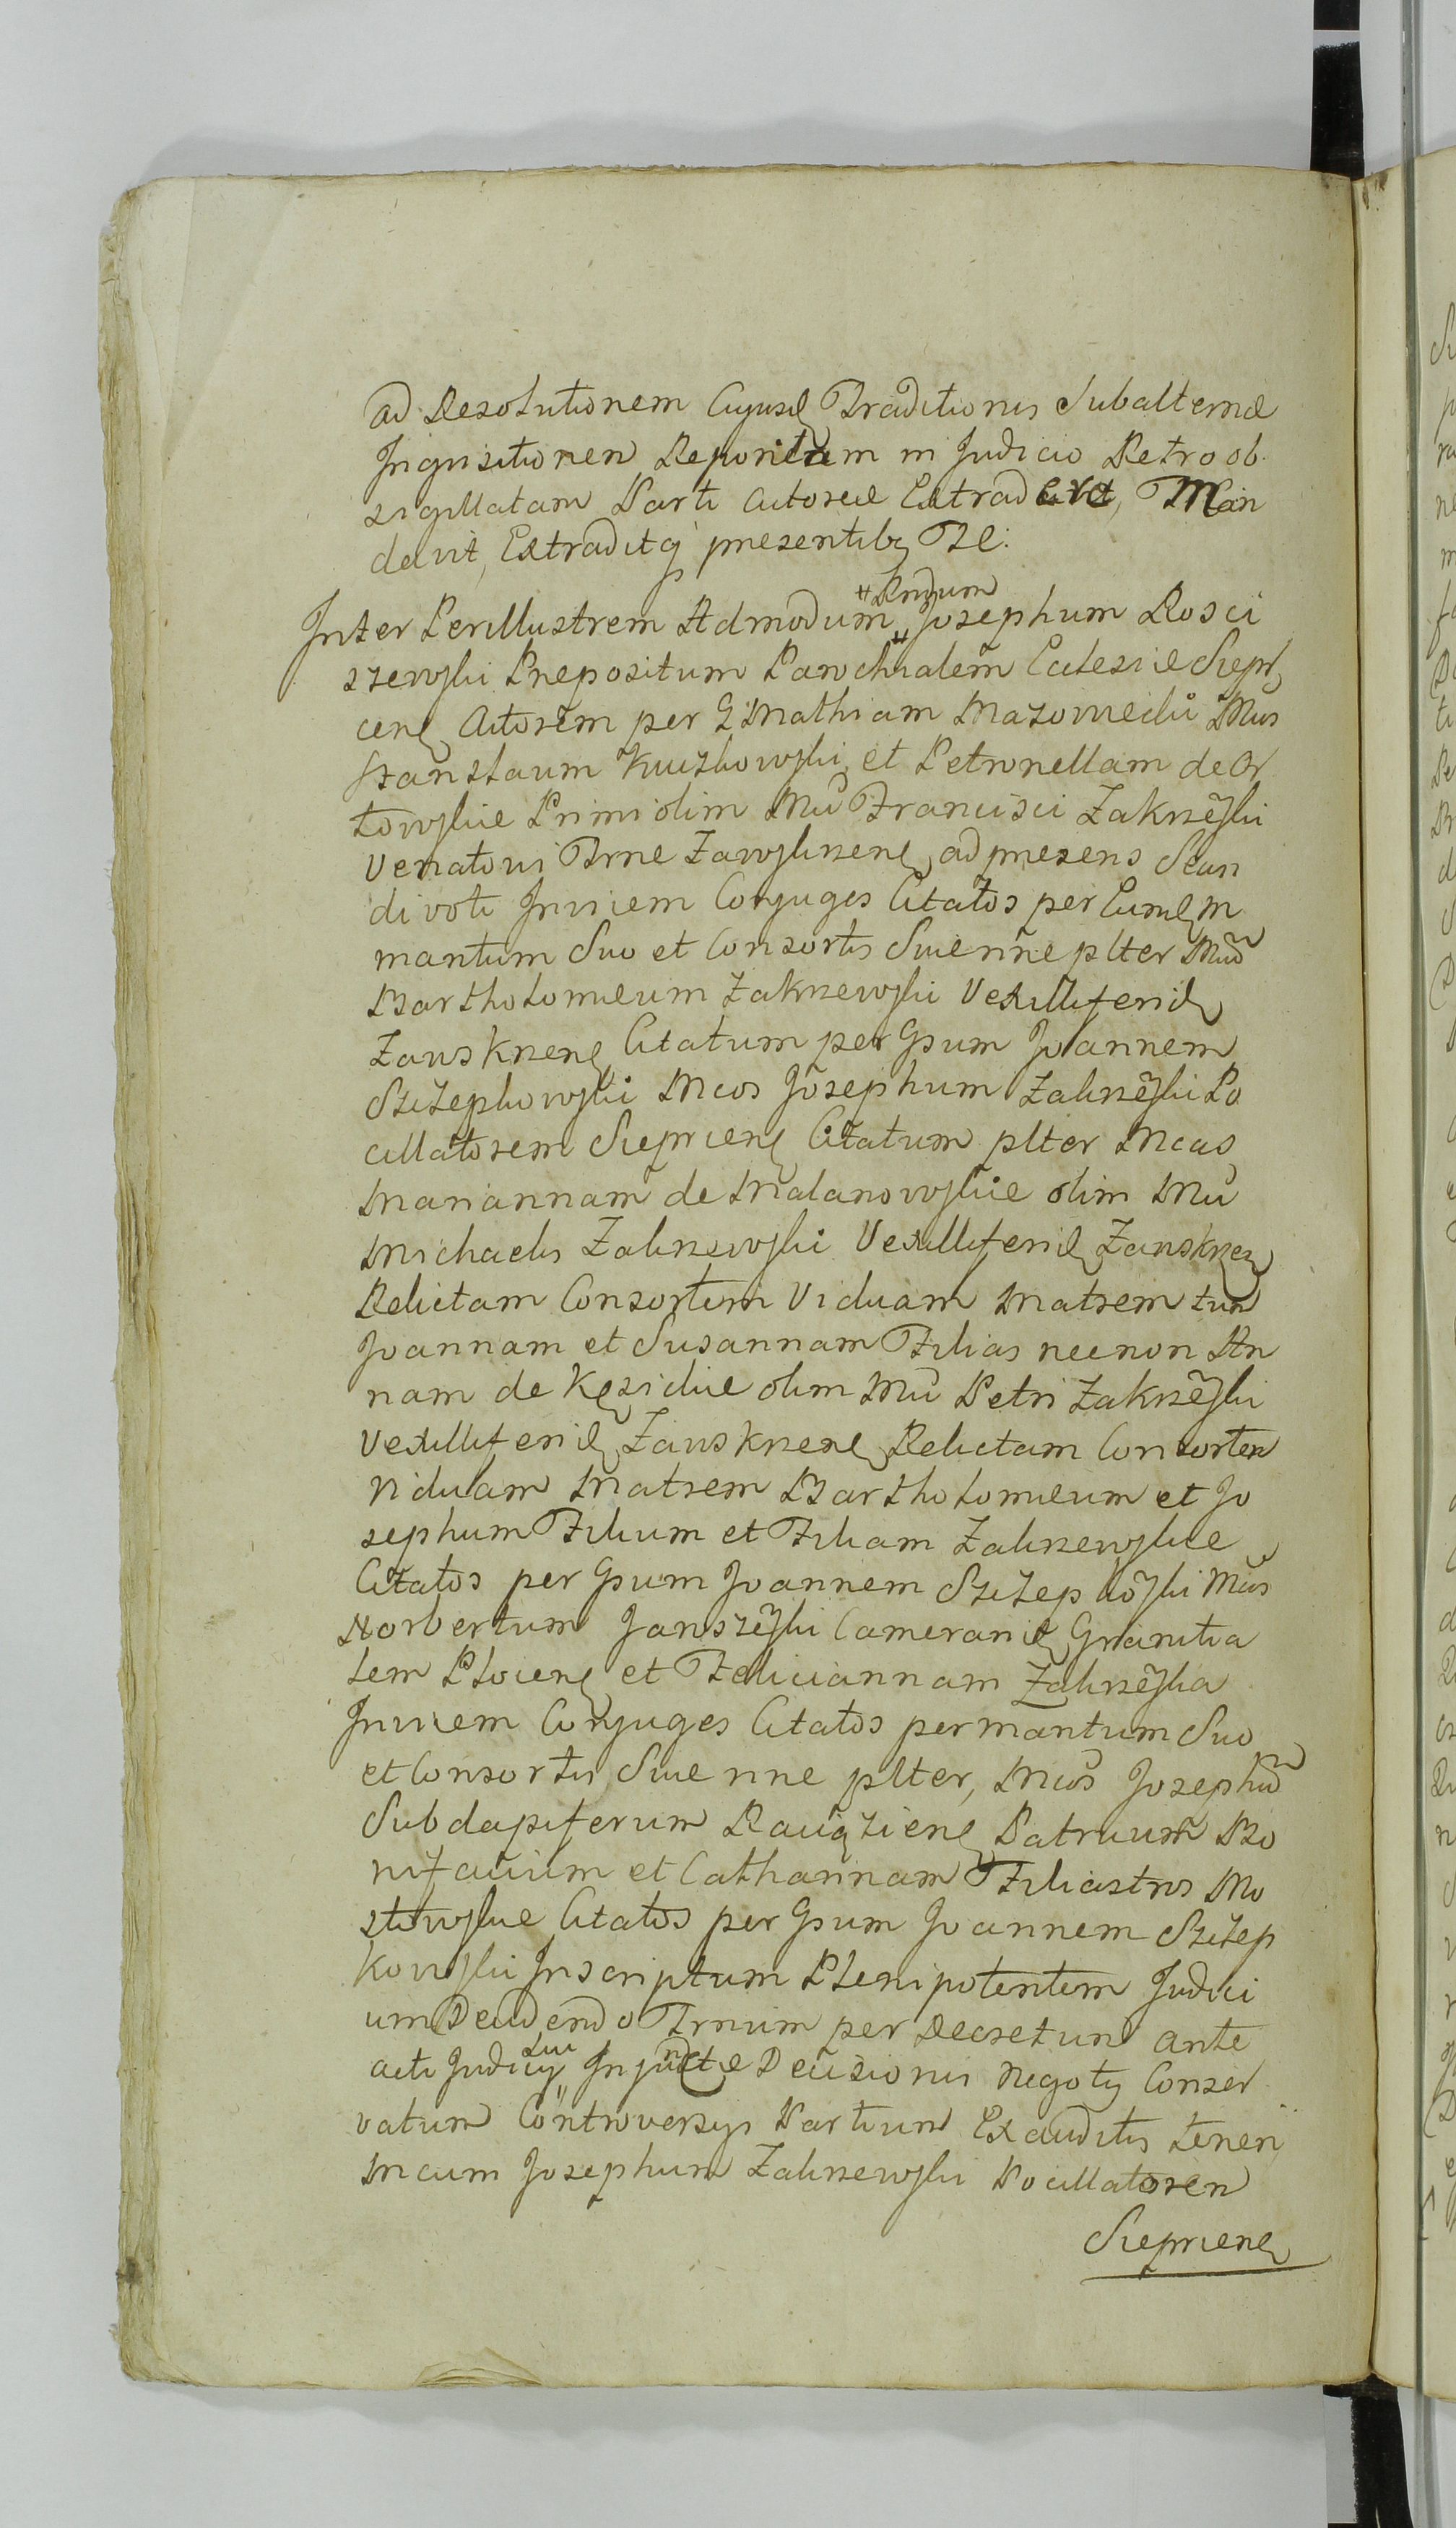 ad Resolutionem Cujusq Traditionis Subalternæ
Inquisitionem Reponitam in Judicio Retro ob
sigillatam Parti Actoreæ Extradere, Man
davit, Extraditq presentibq Tl.
Inter Perillustrem Admodum Rndum Josephum Rosci
szewski Prepositum Parochialem Eclesiæ Siepr
cen Actorem per G Mathiam Mazowiecki Mm
Stanslaum Kuczkowski et Petronellam de Or
towskie Primi olim Mci Francisci Zakrzeski
Venatoris Trræ Zawskrzen, ad presens Secun
di voti Invicem Conjuges Citatos per Eundem
maritum Suo et Consortis Suæ nne plter Mm
Bartholomæum Zakrzewski Vexilliferid
Zawskrzen Citatum per Gsum Joannem
Szczepkowski Mcos Josephum Zakrzeski Po
cillatorem Sieprcen Citatum plter Mcas
Mariannam de Malanowskie olim Mci
Michaelis Zakrzewski Vexilliferid Zawskrzen
Relictam Consortem Viduam Matrem tum
Joannam et Susannam Filias necnon An
nam de Kęsickie olim Mci Petri Zakrzeski
Vexilliferid Zawskrzen Relictam Consortem
Viduam Matrem Bartholomæum et Jo
sephum Filium et Filiam Zakrzewskie
Citatos per Gsum Joannem Szczepkoski Mcos
Norbertum Janszeski Camerarid Granitia
lem Plocen et Feliciannam Zakrzeska
Invicem Conjuges Citatos per maritum Suo
et Consortis Suæ nne plter, Mcos Josephum
Subdapiferum Raciązien Patruum Bo
nifacium et Catharinam Filiastros Mo
stowskie Citatos per Gsum Joannem Szczep
kowski Inscriptum Plenipotentem Judici
um Decidendo Trnum per Decretum ante
acti Judicii Sui Injunctæ Decisionis Negotij Conser
vatum Controversijs Partium Exauditis teneri
Mcum Josephum Zakrzewski Pocillatorem
Sieprcen